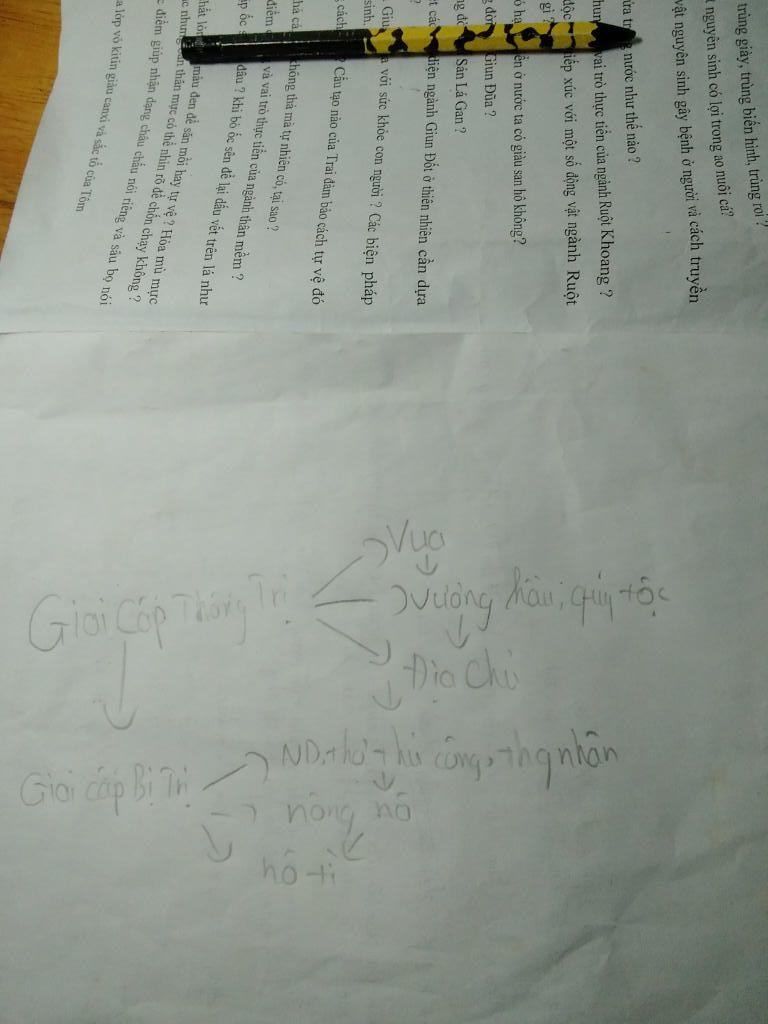 trùng giày, trùng biến hình, trùng roi ?
nguyên sinh có lợi trong ao nuôi cá?
vật nguyên sinh gây bệnh ở người và cách truyền
nước như thế nào ?
vai trò thực tiễn của ngành Ruột Khoang ?
tiếp xúc với một số động vật ngành Ruột
gì ?
ở nước ta có giàu san hô không?
Giun Đũa ?
Sán Lá Gan ?
diện ngành Giun Đốt ở thiên nhiên cần dựa
?
với sức khỏe con người ? Các biện pháp
sinh.
cách ? Cấu tạo nào của Trai đảm bảo cách tự vệ đó
không thả mà tự nhiên có, tại sao ?
điểm và vai trò thực tiễn của ngành thân mềm ?
ốc đâu ? khi bò ốc sên để lại dấu vết trên lá như
màu đen để săn mồi hay tự vệ ? Hỏa mù mực
nhưng thân mực có thể nhìn rõ để chốn chạy không ?
điểm giúp nhận dạng châu chấu nói riêng và sâu bọ nói
lớp vỏ kitin giàu canxi và sắc tố của Tôm
Vua
Giai Cấp Thống Trị Vương hầu, quý tộc
Địa Chủ
ND, thợ thủ công, thg nhân
Giai cấp Bị Trị nông nô
nô tì